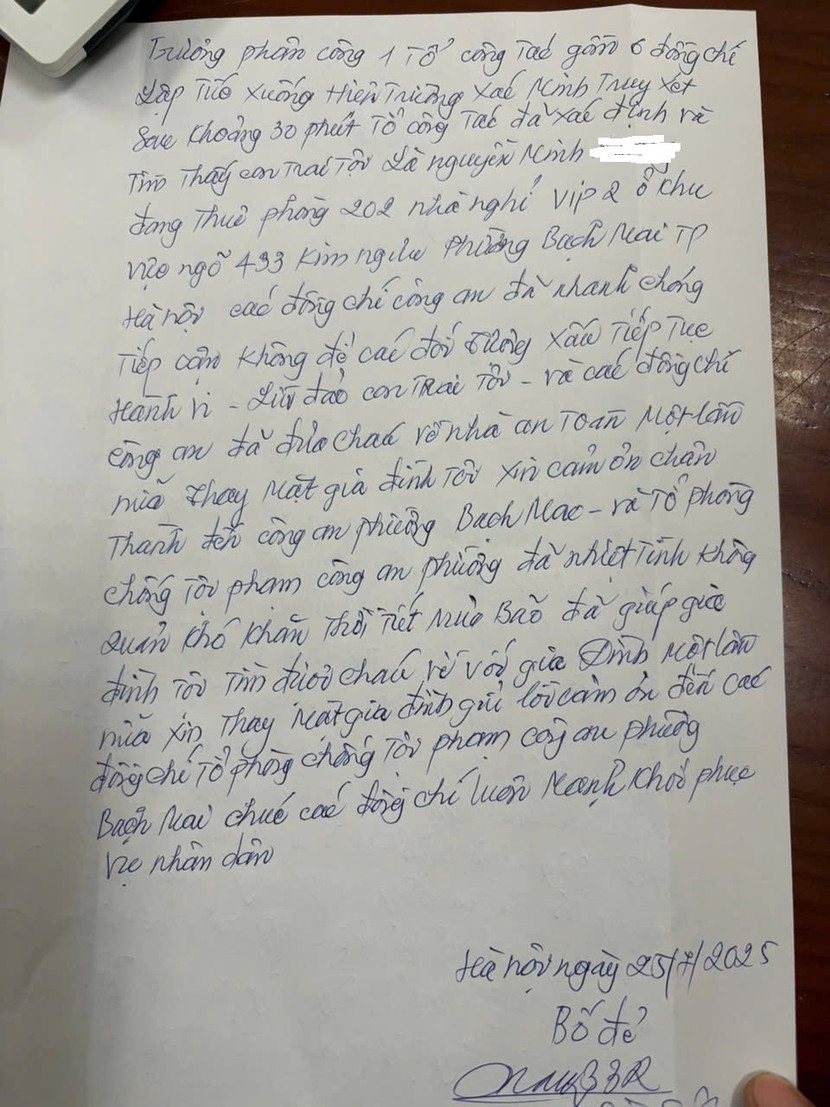 Trưởng phân công 1 Tổ công Tác gồm 6 đồng chí
Lập Tức xuống Hiện Trường xác Minh Truy xét
Sau khoảng 30 phút Tổ công Tác đã xác định và
Tìm Thấy con Trai Tôi Là nguyễn Minh
đang Thuê phòng 202 nhà nghỉ Vip 2 ở khu
vực ngõ 433 Kim ngưu Phường Bạch Mai TP
Hà nội các đồng chí công an đã nhanh chóng
Tiếp cận không để các đối Tượng xấu Tiếp Tục
Hành vi - Lừa đảo con Trai Tôi - và các đồng chí
công an đã đưa cháu về nhà an Toàn Một lần
nữa Thay Mặt gia đình Tôi xin cảm ơn chân
Thành đến công an phường Bạch Mac - và Tổ phòng
chống Tội phạm công an phường đã nhiệt Tình không
quản khó khăn Thời Tiết Mưa Bão đã giúp gia
đình Tôi Tìm được cháu về với gia Đình Một lần
nữa xin Thay Mặt gia đình gửi lời cảm ơn đến các
đồng chí Tổ phòng chống Tội phạm công an phường
Bạch Mai chúc các đồng chí luôn Mạnh khoẻ phục
vụ nhân dân
Hà nội ngày 25/7/2025
Bố đẻ